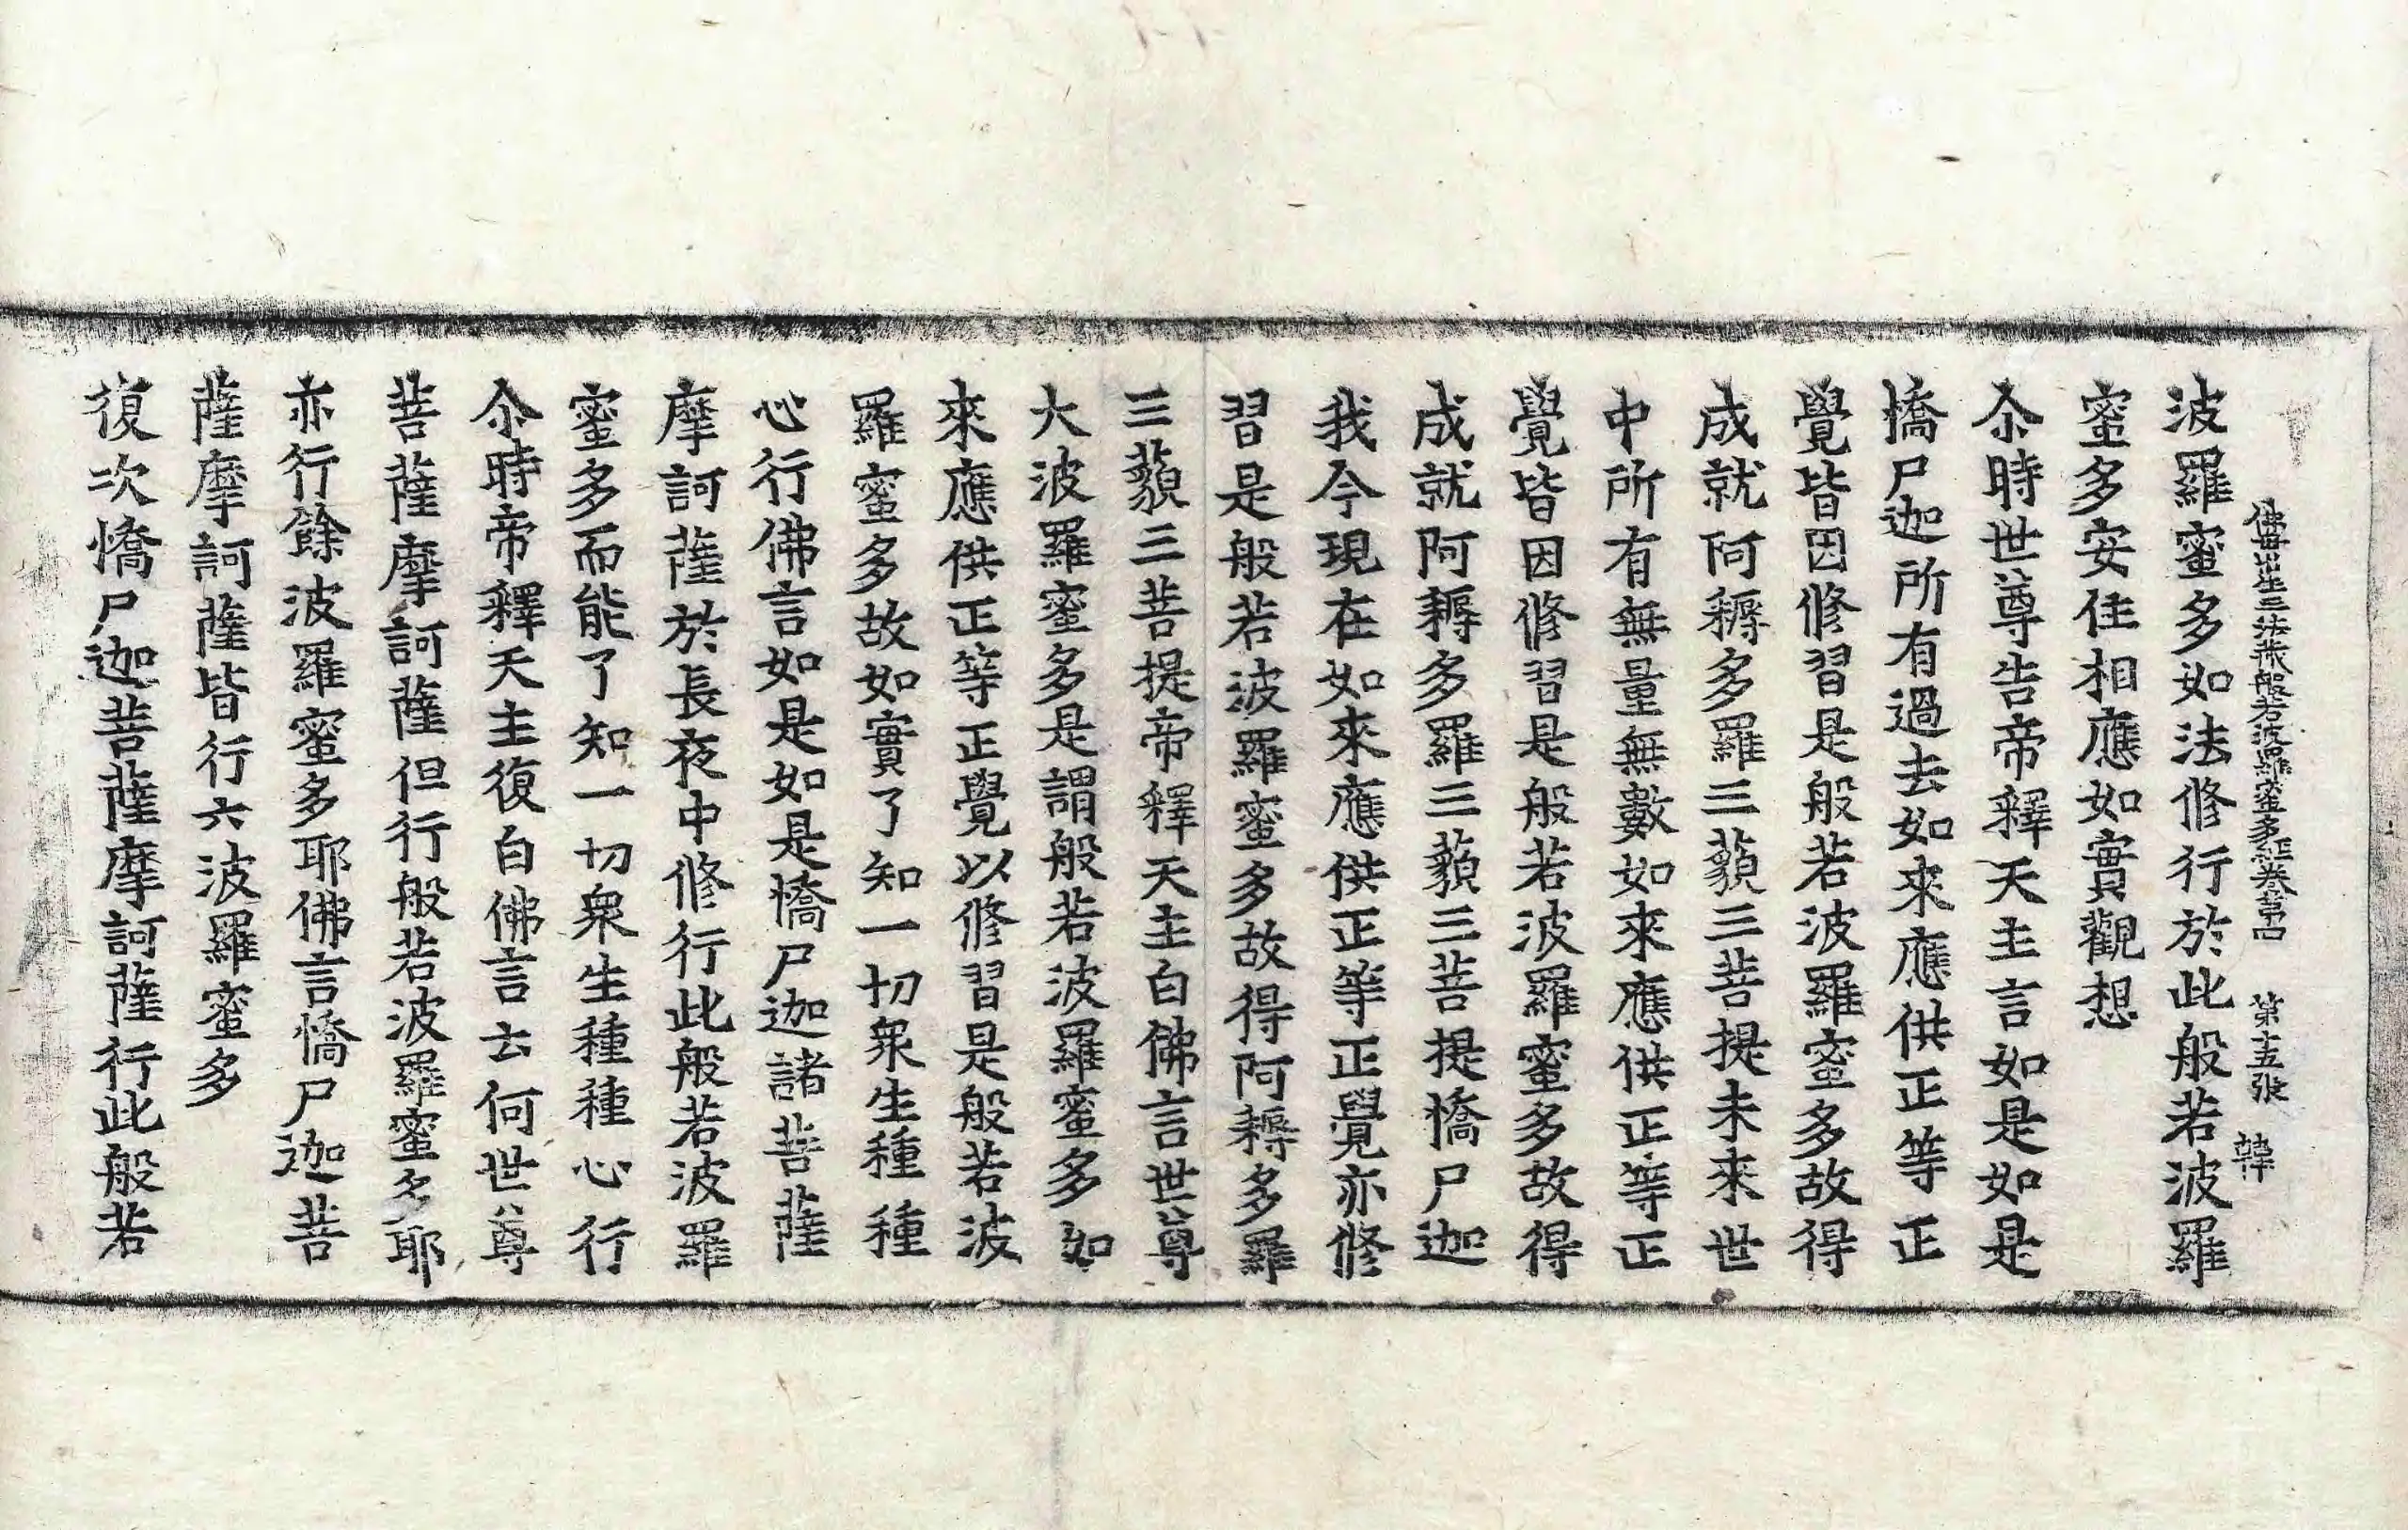 佛母出生三法藏般若波羅蜜多經卷第四 第十五張 韓
波羅蜜多如法修行於此般若波羅
蜜多安住相應如實觀想
尒時世尊告帝釋天主言如是如是
憍尸迦所有過去如來應供正等正
覺皆因修習是般若波羅蜜多故得
成就阿耨多羅三藐三菩提未來世
中所有無量無數如來應供正等正
覺皆因修習是般若波羅蜜多故得
成就阿耨多羅三藐三菩提憍尸迦
我今現在如來應供正等正覺亦修
習是般若波羅蜜多故得阿耨多羅
三藐三菩提帝釋天主白佛言世尊
大波羅蜜多是謂般若波羅蜜多如
來應供正等正覺以修習是般若波
羅蜜多故如實了知一切衆生種種
心行佛言如是如是憍尸迦諸菩薩
摩訶薩於長夜中修行此般若波羅
蜜多而能了知一切衆生種種心行
尒時帝釋天主復白佛言云何世尊
菩薩摩訶薩但行般若波羅蜜多耶
亦行餘波羅蜜多耶佛言憍尸迦菩
薩摩訶薩皆行六波羅蜜多
復次憍尸迦菩薩摩訶薩行此般若